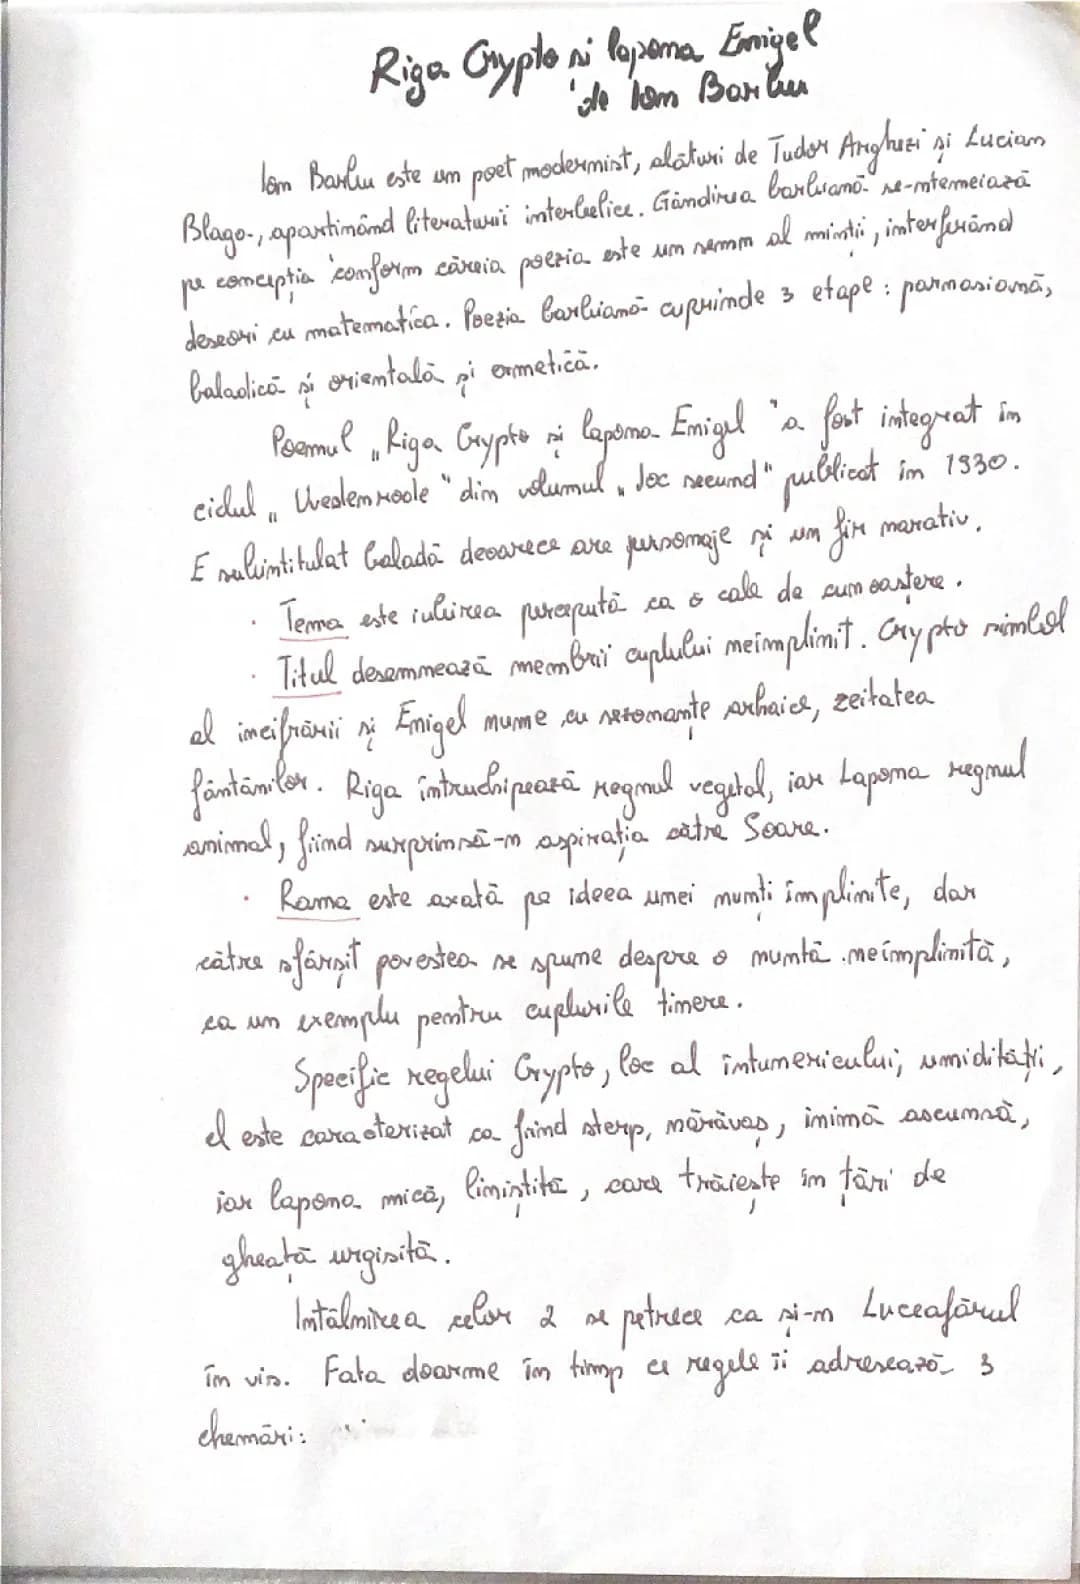 Riga Crypto și lapona Enigel
de Ion Barbu
Ion Barbu este un poet modernist, alături de Tudor Arghezi și Lucian
Blaga, aparținând literaturii interbelice. Gândirea barbiană se-ntemeiază
pe concepția conform căreia poezia este un semn al minții, interferând
deseori cu matematica. Poezia barbiană cuprinde 3 etape: parnasiană,
baladică și orientală și ermetică.
Poemul „Riga Crypto și lapona Enigel" a fost integrat în
ciclul „Uvedenrode" din volumul „Joc secund" publicat în 1930.
E subintitulat baladă deoarece are personaje și un fir narativ.
· Tema este iubirea percepută ca o cale de cunoaștere.
· Titul desemnează membrii cuplului neîmplinit. Crypto simbol
al incifrării și Enigel nume cu rezonanțe arhaice, zeitatea
fântânilor. Riga întruchipează regnul vegetal, iar Lapona regnul
animal, fiind surprinsă-n aspirația către Soare.
· Rama este axată pe ideea unei nunți împlinite, dar
către sfârșit povestea se spune despre o nuntă neîmplinită,
ca un exemplu pentru cuplurile tinere.
Specific regelui Crypto, loc al întunericului, umidității,
el este caracterizat ca fiind sterp, nărăvaș, inimă ascunsă,
iar lapona mică, liniștită, care trăiește în țări de
gheață urgisită.
Intâlnirea celor 2 se petrece ca și-n Luceafărul
în vis. Fata doarme în timp ce regele îi adresează 3
chemări: